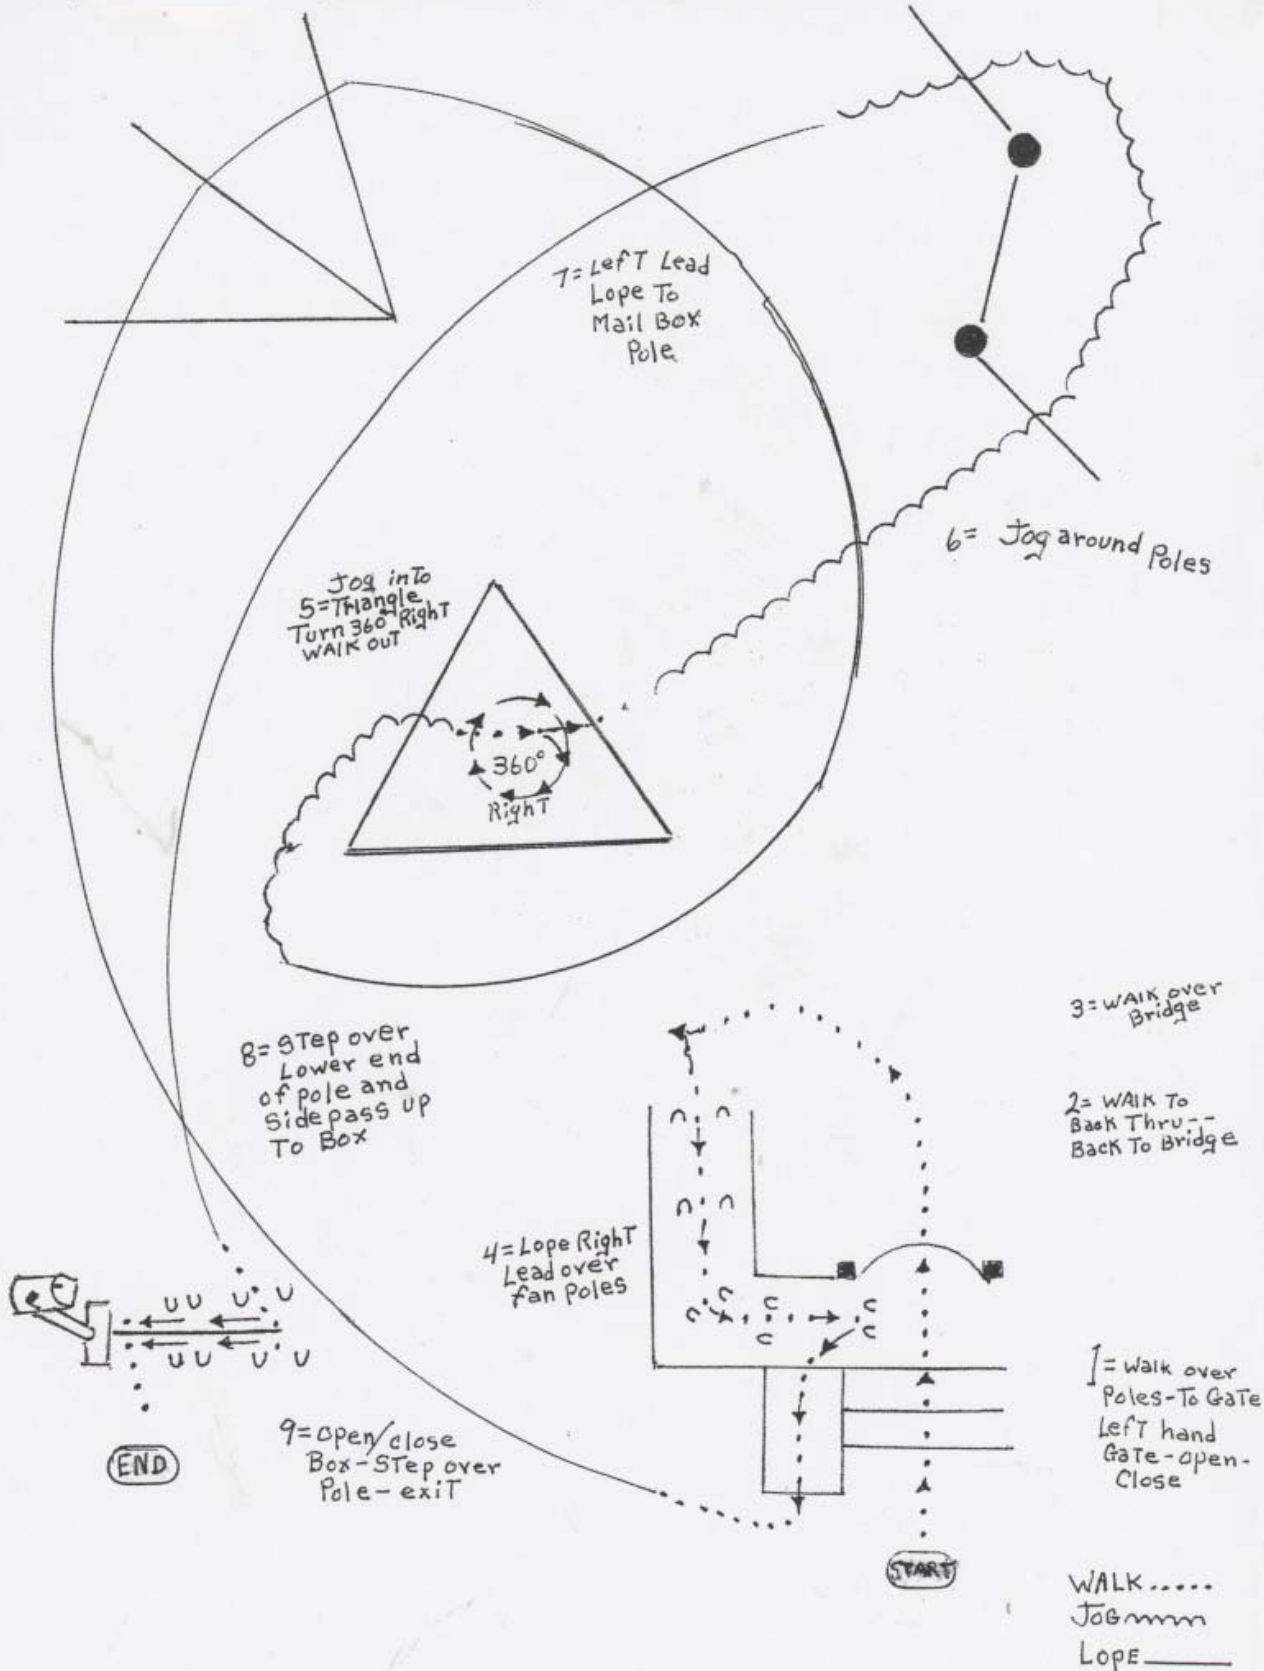 7= Left Lead
Lope To
Mail Box
Pole
6= Jog around Poles
Jog inTo
5= Triangle
Turn 360° Right
WALK OUT
360°
Right
3= WALK over
Bridge
8= STep over
Lower end
of pole and
Sidepass up
To Box
2= WALK To
Back Thru--
Back To Bridge
4= Lope Right
Lead over
fan Poles
1= Walk over
Poles-To GaTe
Left hand
GaTe-open-
Close
9= open/close
Box-STep over
Pole-exiT
END
START
WALK.....
JOG
LOPE